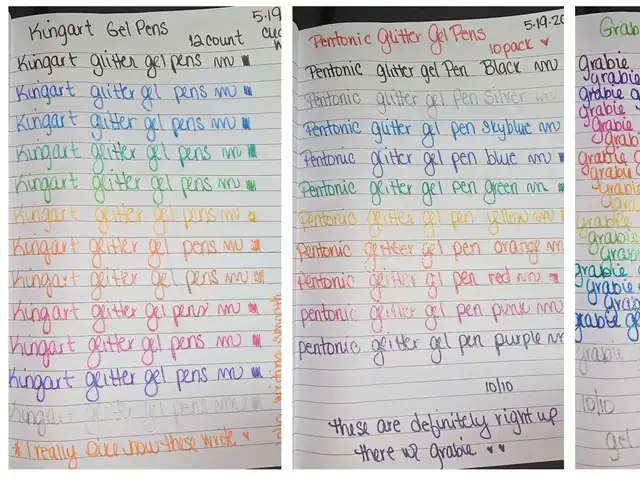 Kingart Gel Pens
5.19
12 count
Kingart glitter gel pens
Kingart glitter gel pens
Kingart glitter gel pens
Kingart glitter gel pens
Kingart glitter gel pens
Kingart glitter gel pens
Kingart glitter gel pens
Kingart glitter gel pens
Kingart glitter gel pens
Kingart glitter gel pens
Kingart glitter gel pens
Kingart glitter gel pens
* I really like how these write ♥
Pentonic Glitter Gel Pens
5.19.20
10 pack ♥
Pentonic glitter gel Pen Black
Pentonic glitter gel Pen Silver
Pentonic glitter gel pen skyblue
Pentonic glitter gel pen blue
Pentonic glitter gel pen green
Pentonic glitter gel pen yellow
Pentonic glitter gel pen orange
Pentonic glitter gel pen red
pentonic glitter gel pen
pentonic glitter gel pen purple
10/10
these are definitely right up
there w/ grabie ♥ ♥
Grab
grabie
grabie
grabie a
grabie
grabie
grab
grabie
grabie
grabie
grabi
grabie
grabie
grabie
grabie
grabie
grabi
grabie ge
grabie
10/10
gel